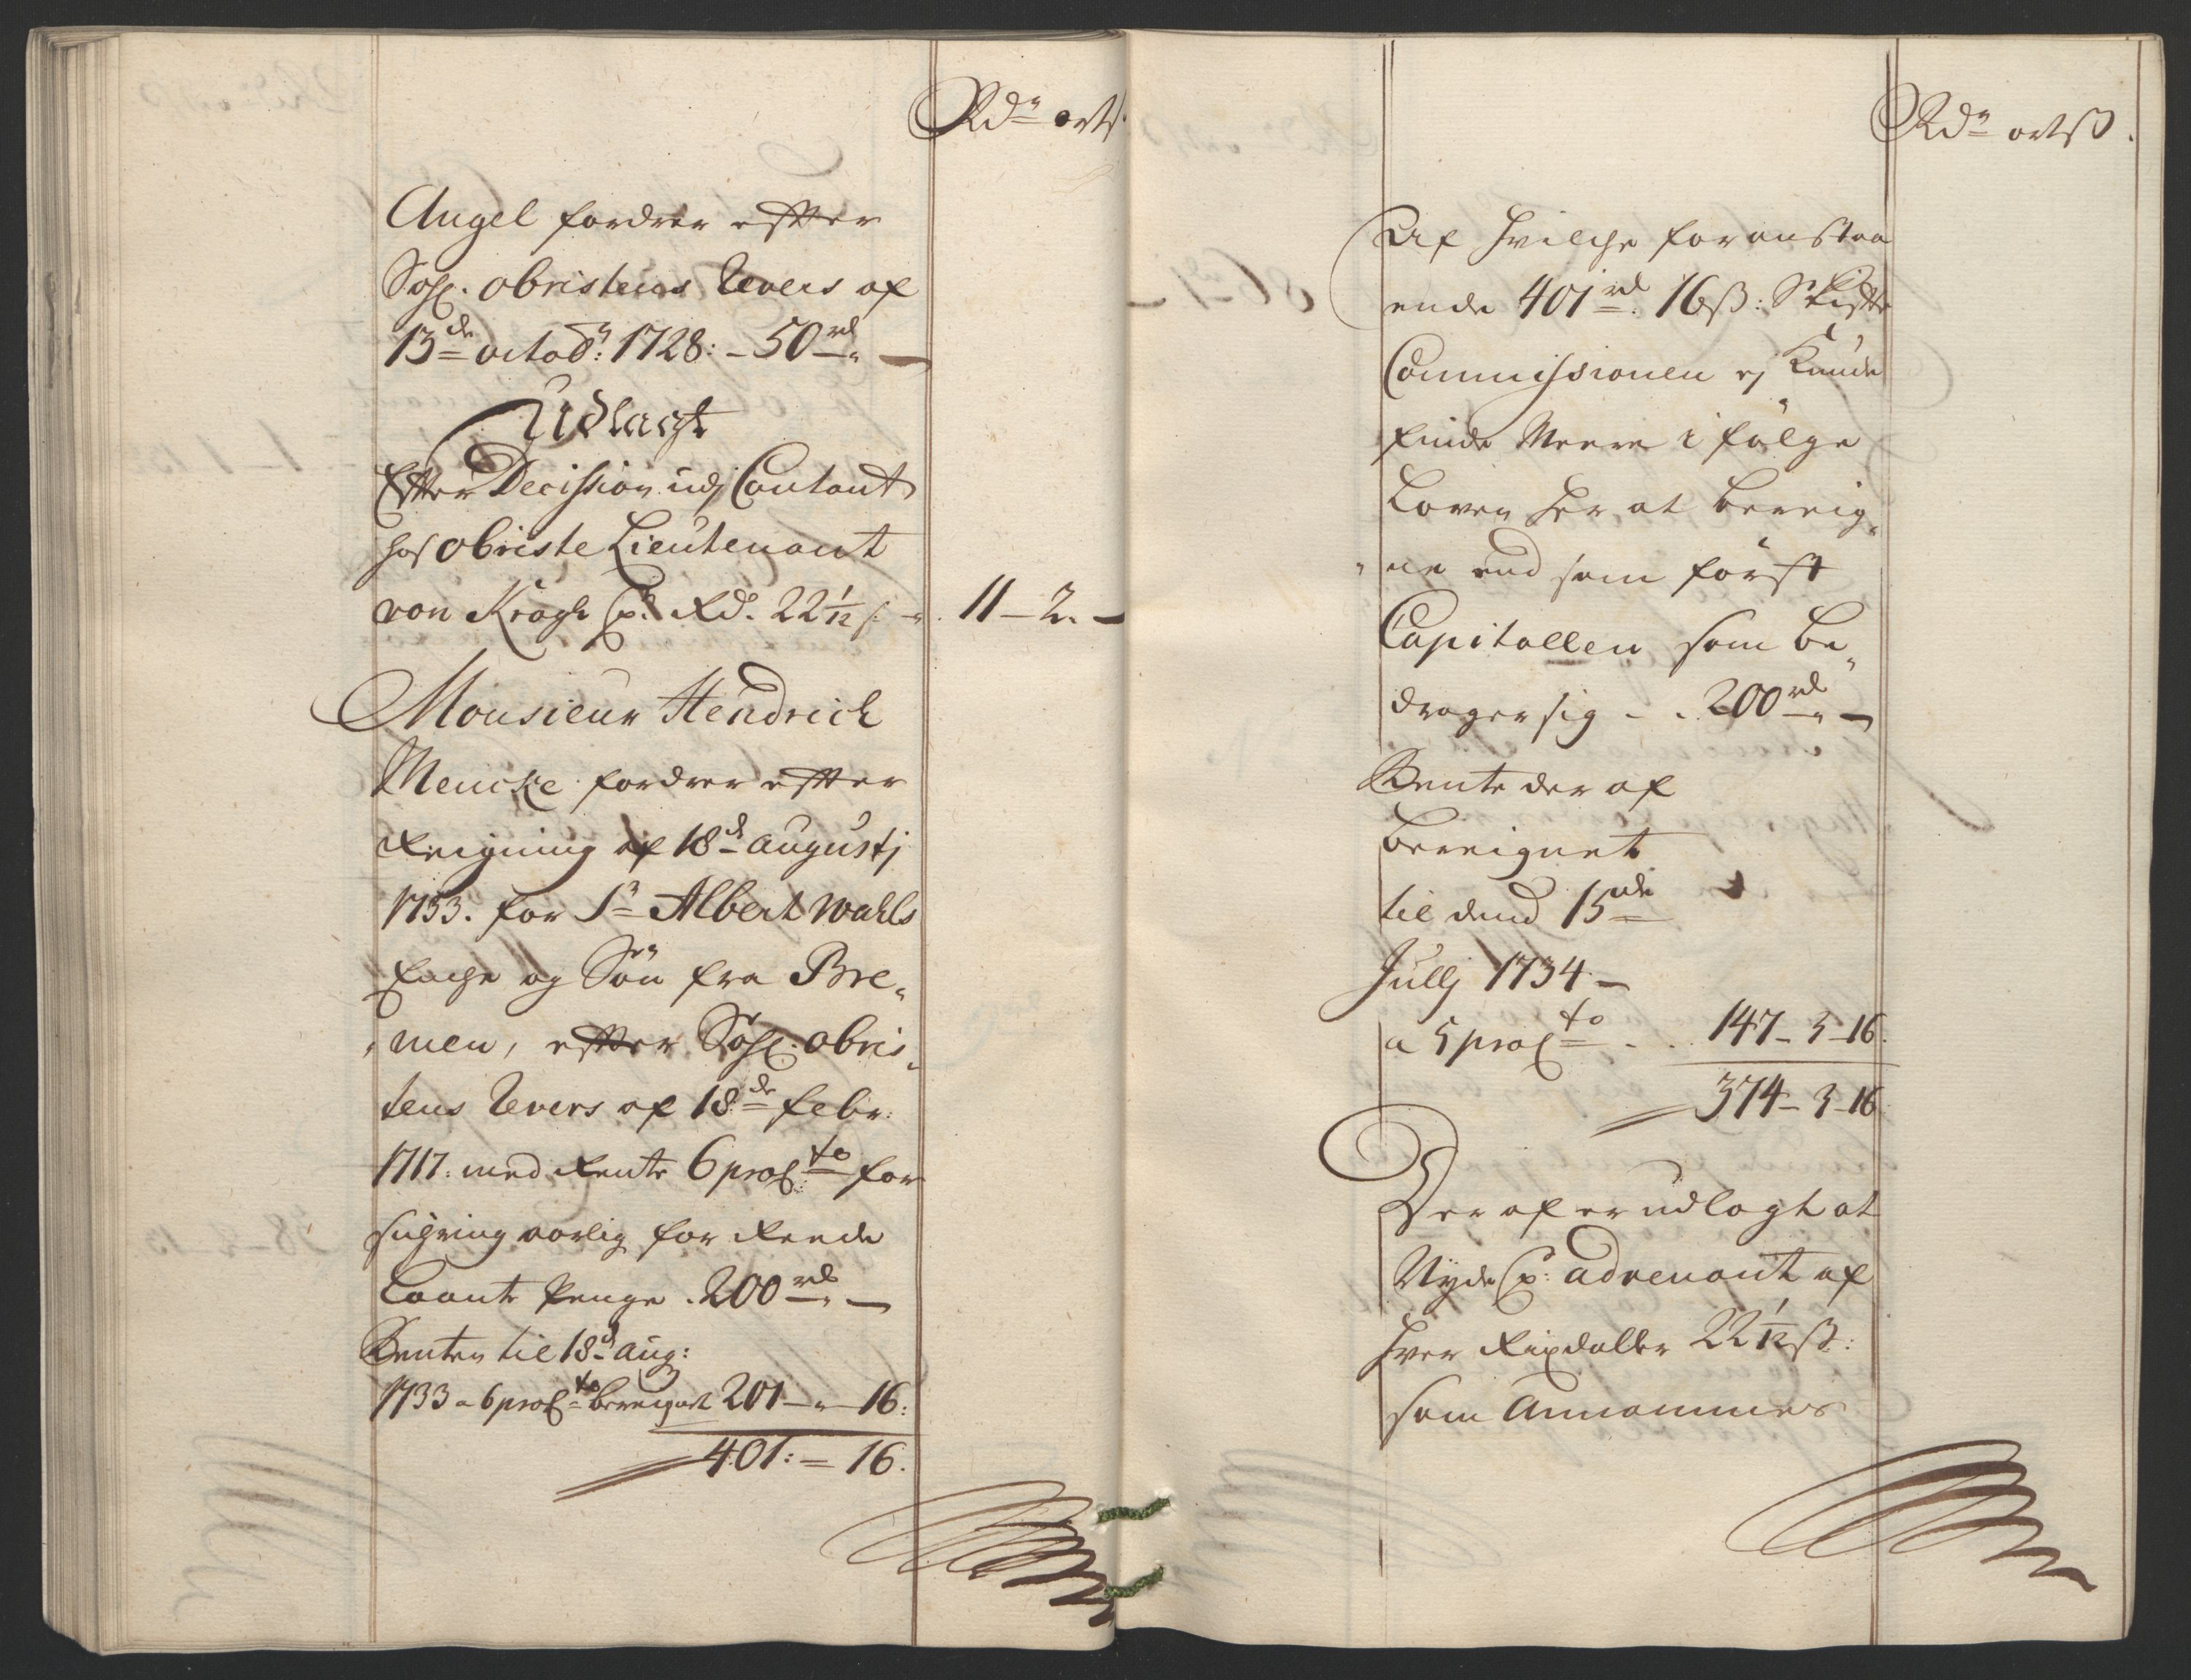 Rdr ort
Angel fordrer efter
Sahl. obristens Revers af
13de octobr: 1728: - 50 rd " —
Udlagt
Efter Decission udj Contant
hos obriste Lieutenant
von Krogh pr. Rd. 22 1/12 s: - 11 - 2. —
Monsieur Hendrich
Mencke fordrer efter
Reigning af 18d augustj
1733. for Sr Albert Wahls
Enche og Sön fra Bre-
men, efter Sahl. obris-
tens Revers af 18de febr:
1717: med Rente 6 proCto for
aarlig for Reede
Laante Penge . 200 rd " —
Renten til 18d aug:
1733 a 6 proCto bereignet 201 - " - 16:
401: = 16.
Rdr ortß.
Af hvilche foranstaa
ende 401 rd. 16ß: Skifte
Commissionen ej kunde
finde Meere i fölge
Loven her at bereig-
ne end som först
Capitallen som be-
drager sig - . 200 rd " —
Rente der af
bereignet
til dend 15de
Jullj 1734 —
a 5 proCto - . . 147 - 3 - 16.
374 - 3 - 16
Der af er udlagt at
Nyde pr: advenant af
hver Rixdaller 22 1/12 ß:
som Annammes